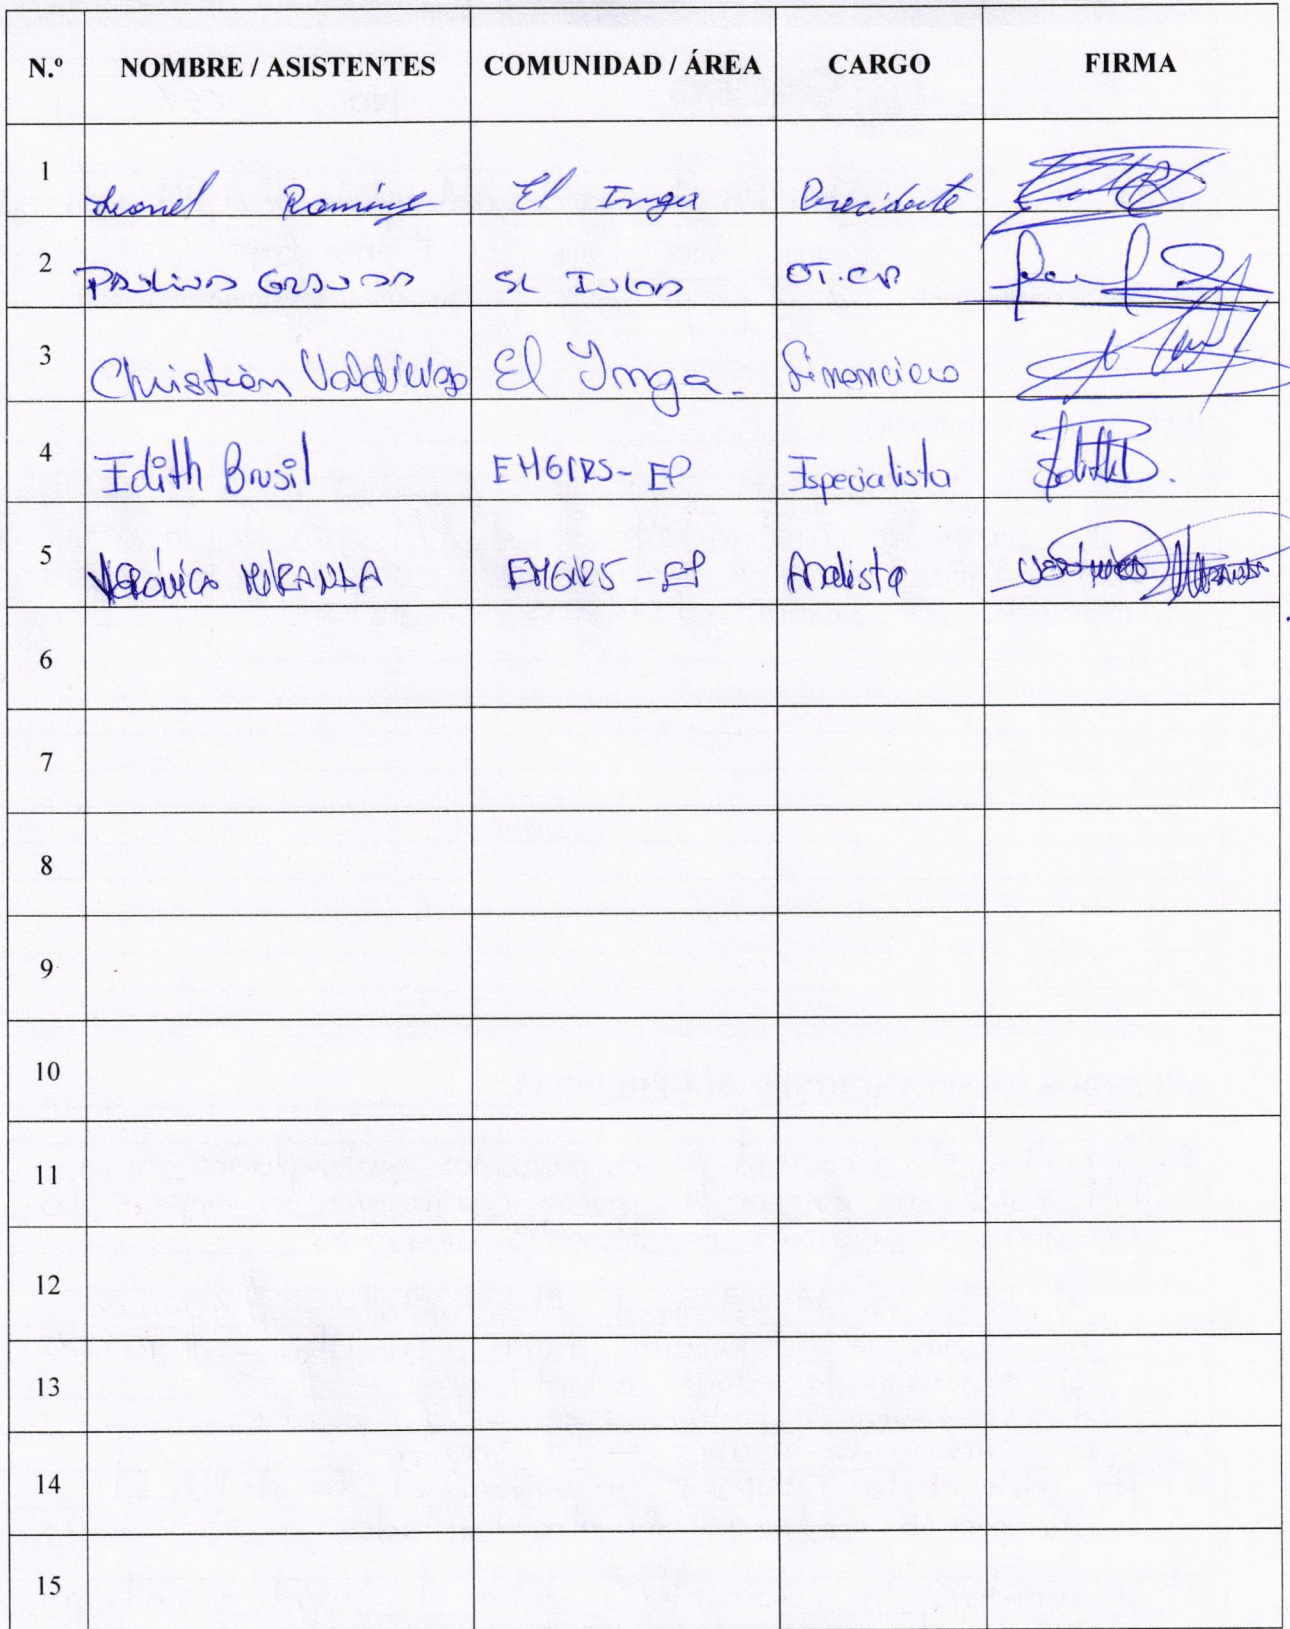 N.º NOMBRE / ASISTENTES COMUNIDAD / ÁREA CARGO FIRMA
1 Leonel Ramírez El Inga Precidente
2 PAULINA GRANDA EL INGA
3 Christian Valdivieso El Inga. Financiero
4 Edith Brusil EMGIRS-EP Especialista EdithB.
5 VERÓNICA MIRANDA EMGIRS-EP Analista VERÓNICA MIRANDA
6
7
8
9
10
11
12
13
14
15